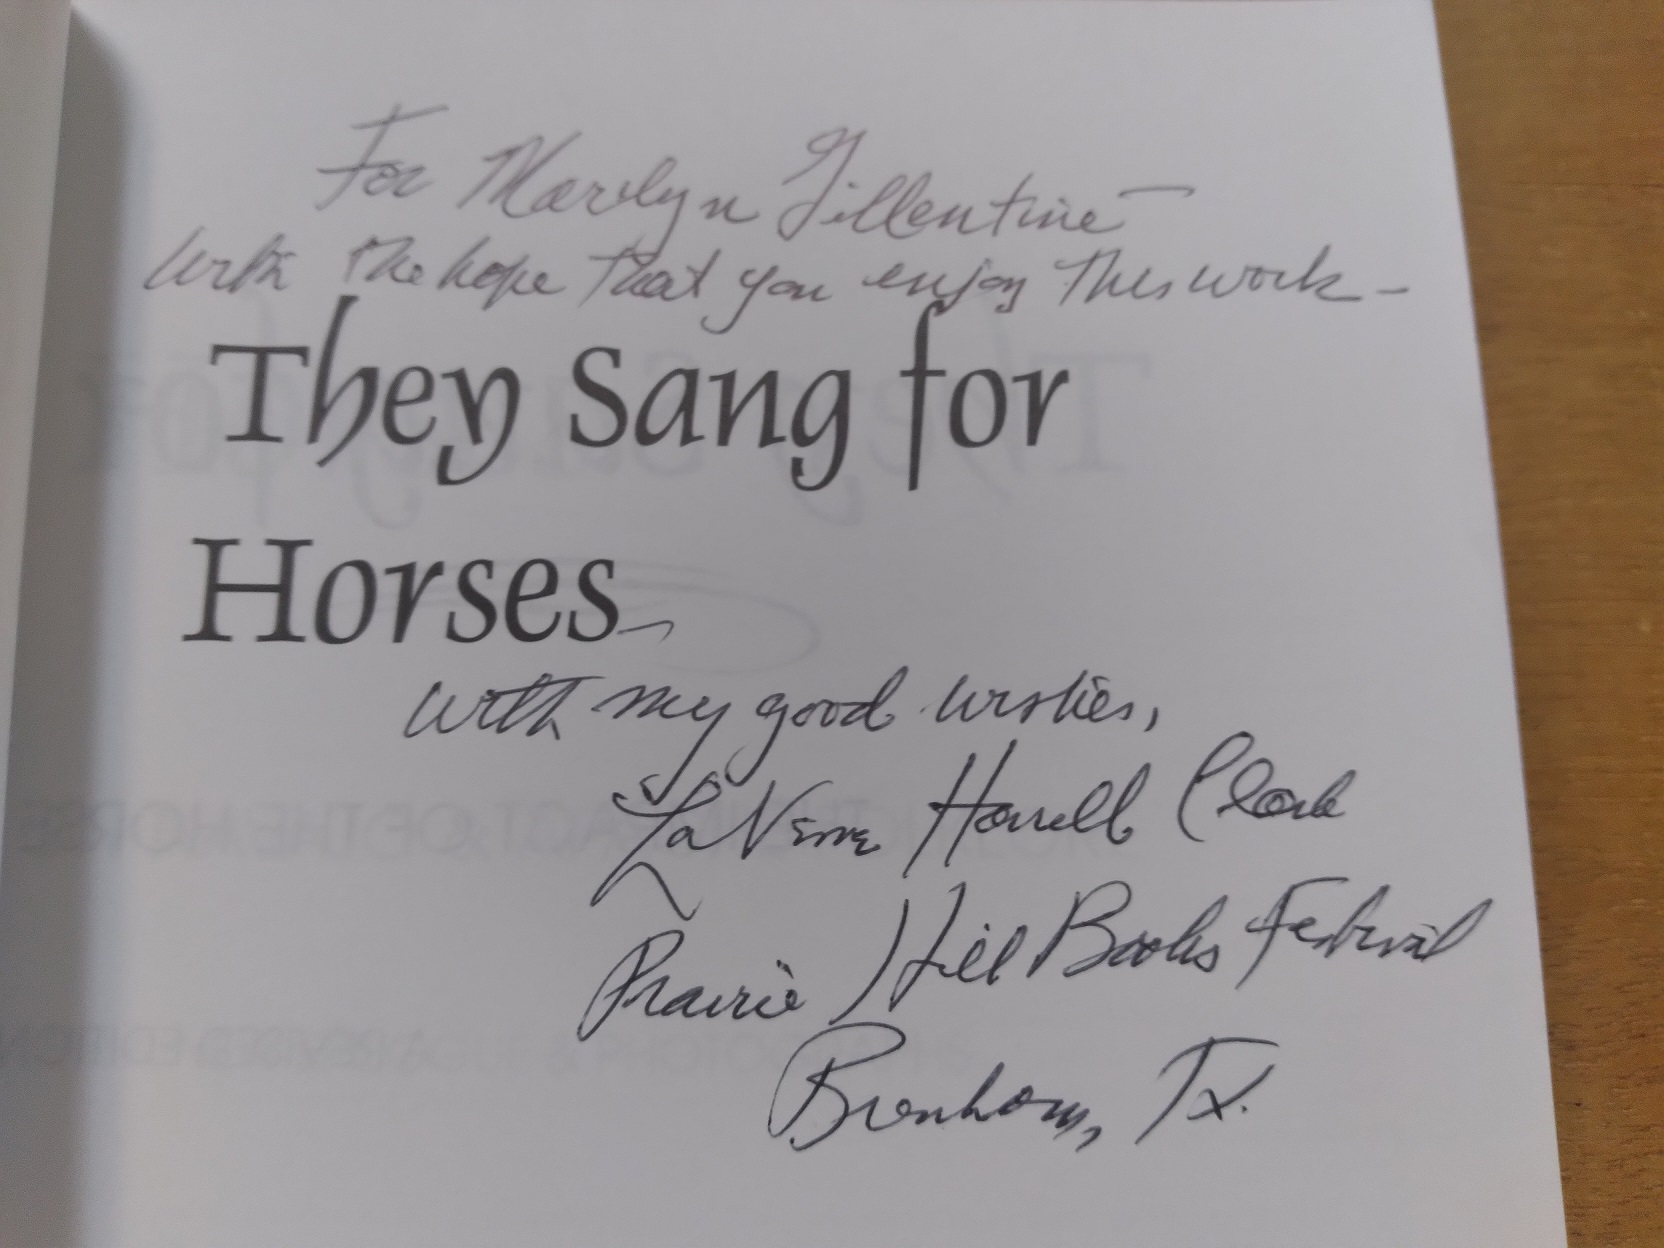 For Marilyn Gillentine —
With the hope that you enjoy this work -
They Sang for
Horses
With my good wishes,
LaVerne Harrell Clark
Prairie Hill Books Festival
Brenham, Tx.